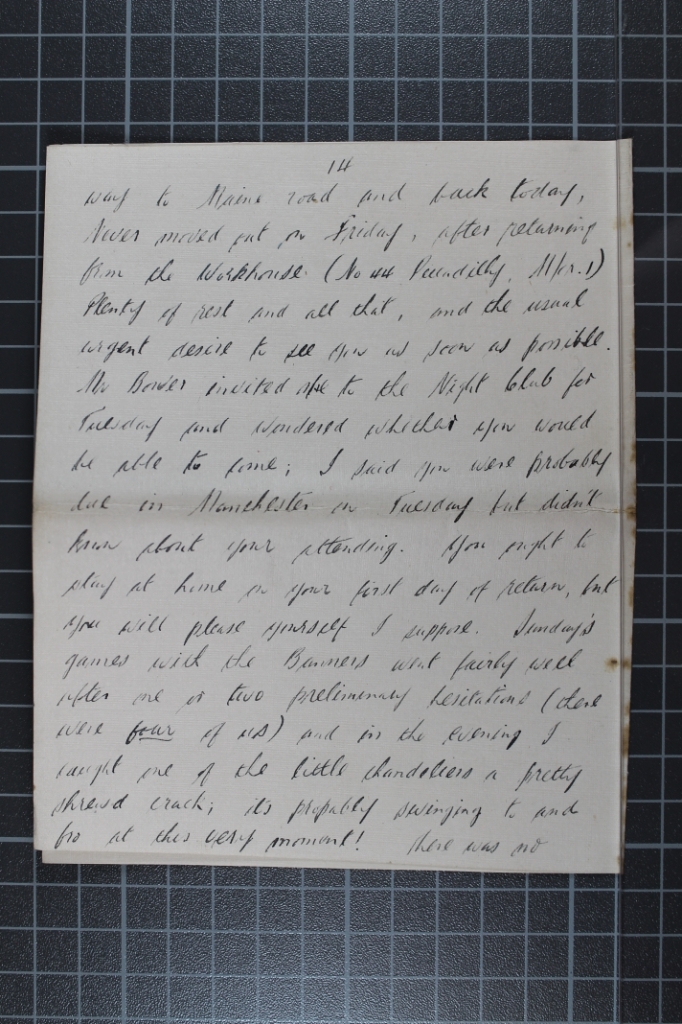 14
way to Maine road and back today,
Never moved out on Friday, after returning
from the Workhouse. (No 44 Piccadilly, M/cr. 1)
Plenty of rest and all that, and the usual
urgent desire to see you as soon as possible.
Mr Bower invited me to the Night Club for
Tuesday and wondered whether you would
be able to come; I said you were probably
due in Manchester on Tuesday but didn't
know about your attending. You ought to
stay at home on your first day of return, but
you will please yourself I suppose. Sunday's
games with the Banners went fairly well
after one or two preliminary hesitations (there
were four of us) and in the evening I
caught one of the little chandeliers a pretty
shrewd crack; it's probably swinging to and
fro at this very moment! There was no